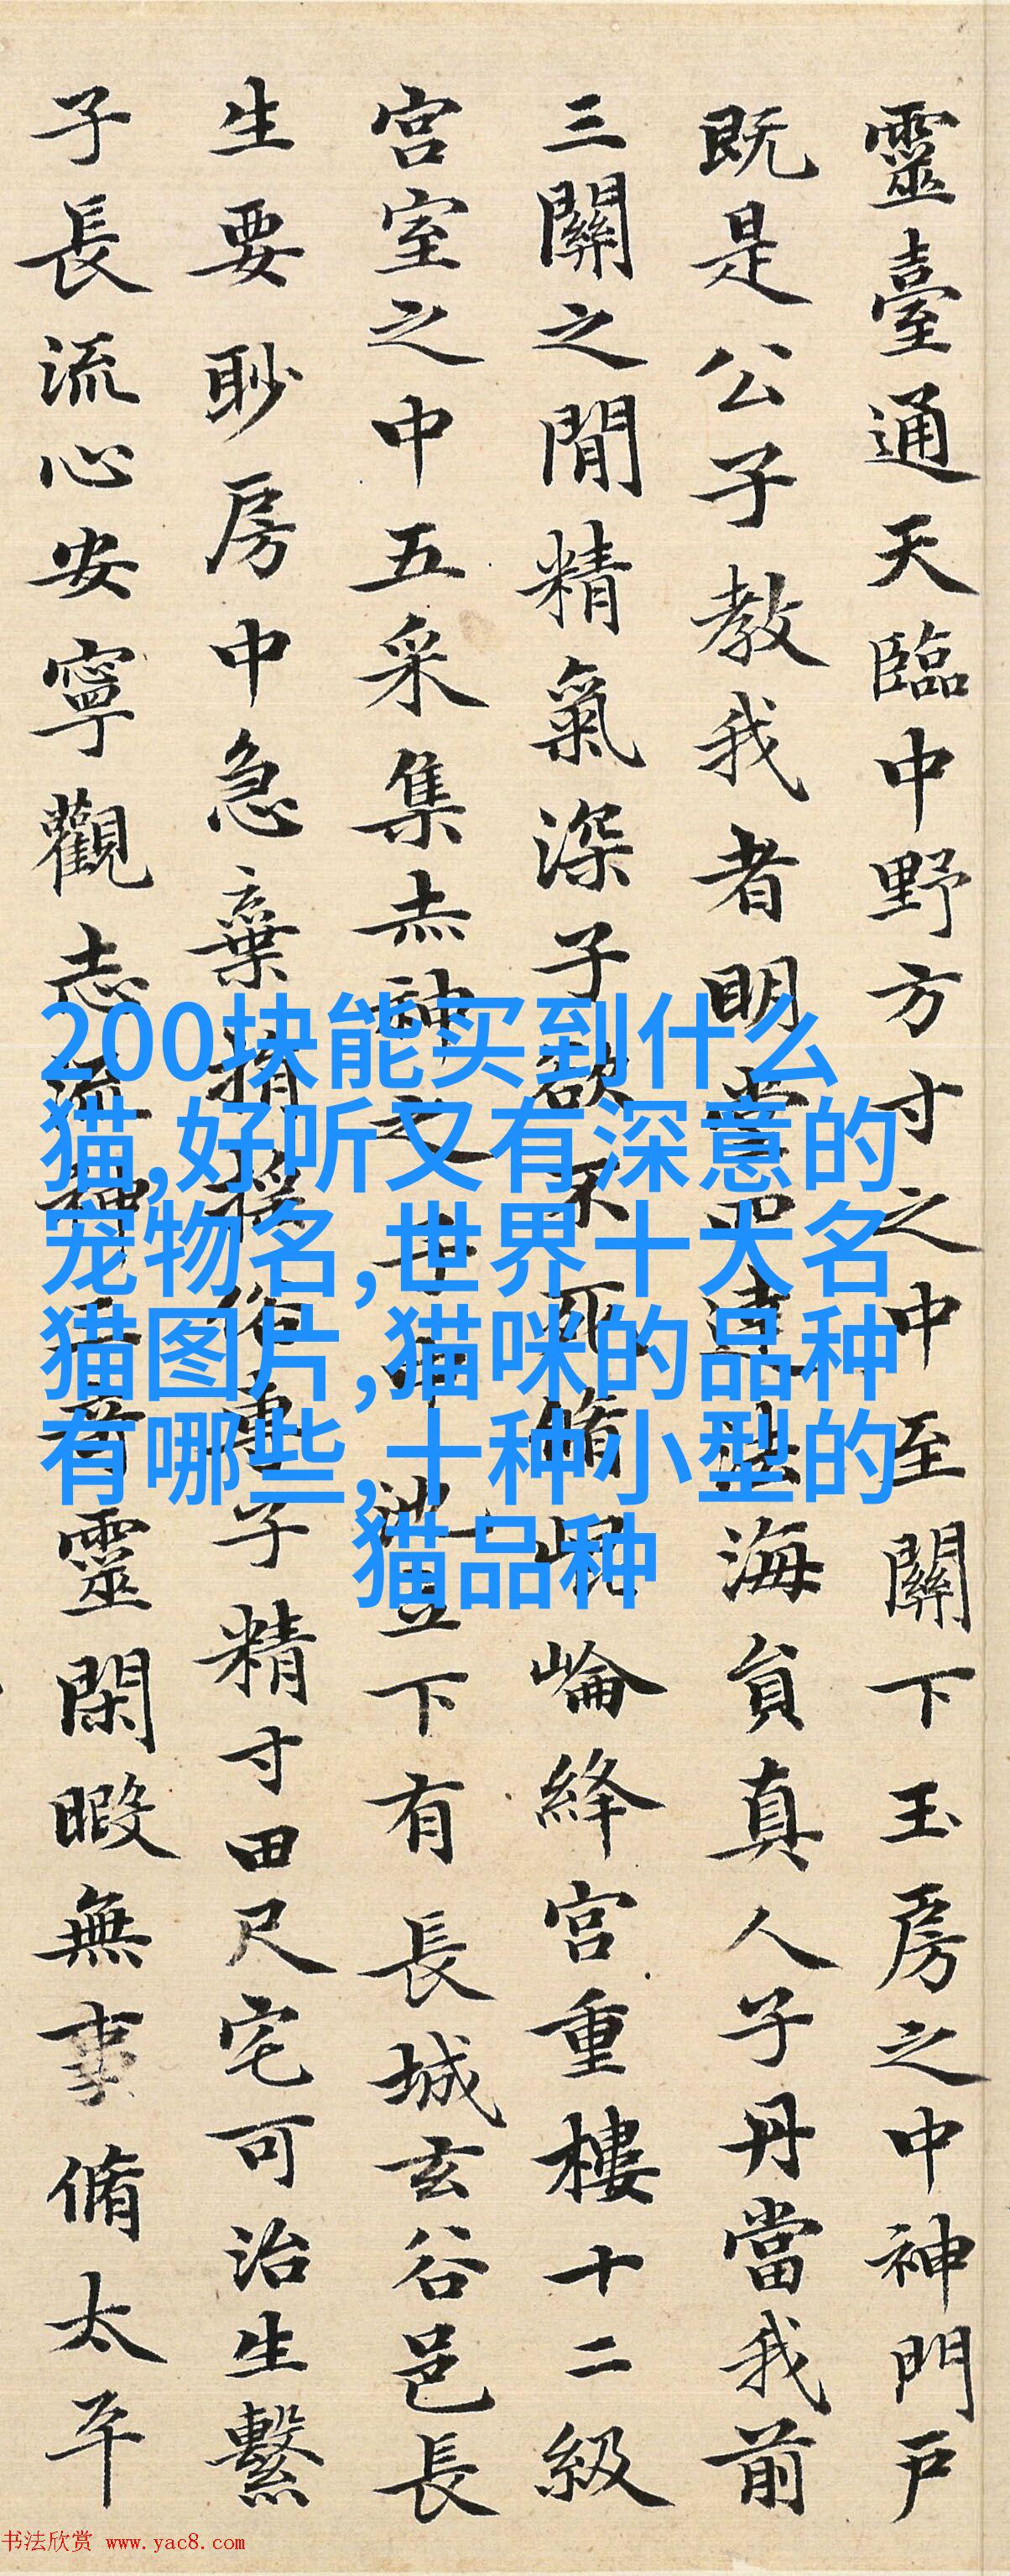 靈臺通天臨中野方寸之中至關下玉房之中神門戶
既是公子教我者明堂四達法海員真人子丹當我前
三關之間精氣深子欲不死脩崐崘絳宮重樓十二級
宮室之中五采集赤神之子中池立下有長城玄谷邑長
生要眇房中急棄捐搖俗專子精寸田尺宅可治生繫
子長流心安寧觀志流神三奇靈閑暇無事脩太平
200块能买到什么
猫,好听又有深意的
宠物名,世界十大名
猫图片,猫咪的品种
有哪些,十种小型的
猫品种
书法欣赏 www.yac8.com